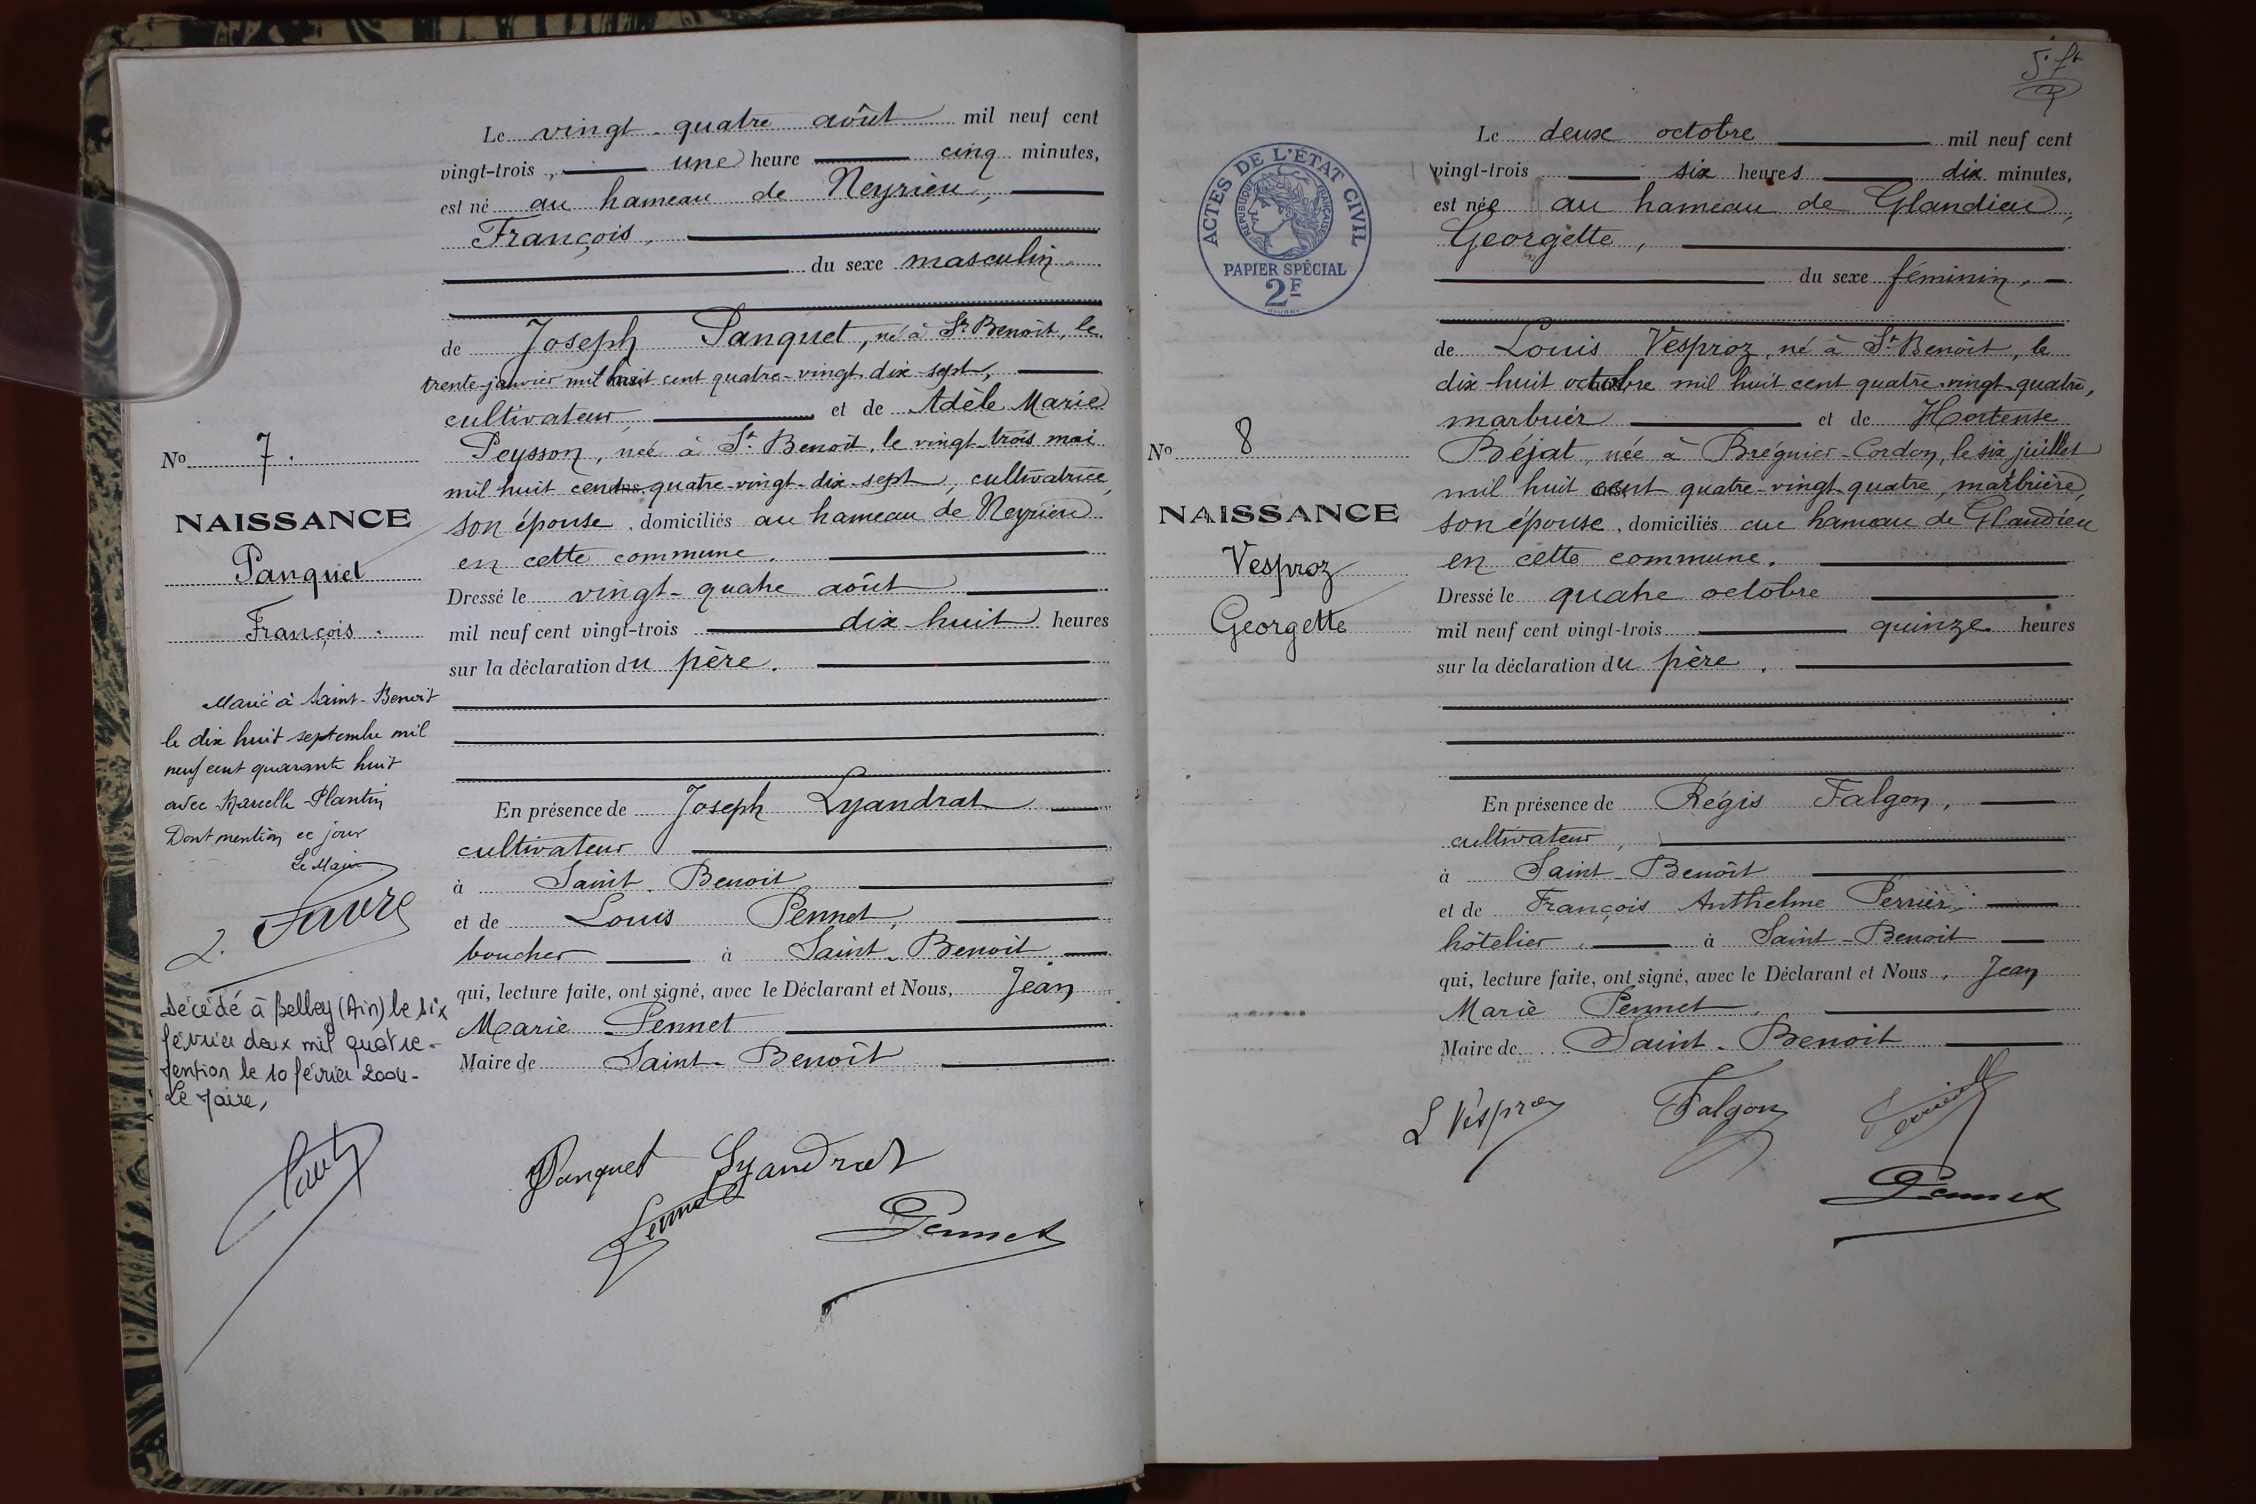 Le vingt-quatre août mil neuf cent
vingt-trois, une heure cinq minutes,
est né au hameau de Neyrieu,
François,
du sexe masculin
de Joseph Panquet, né à St Benoit, le
trente janvier mil huit cent quatre-vingt-dix-sept,
cultivateur, et de Adèle Marie
Peysson, née à St Benoit, le vingt-trois mai
mil huit cent quatre-vingt-dix-sept, cultivatrice,
son épouse, domiciliés au hameau de Neyrieu
en cette commune.
Dressé le vingt-quatre août
mil neuf cent vingt-trois dix-huit heures
sur la déclaration du père.
En présence de Joseph Lyandrat
cultivateur
à Saint-Benoit
et de Louis Pennet,
boucher à Saint-Benoit
qui, lecture faite, ont signé, avec le Déclarant et Nous, Jean
Marie Pennet
Maire de Saint-Benoît
Panquet Lyandrat
Pennet
Pennet
No 7.
NAISSANCE
Panquet
François.
Marié à Saint-Benoit
le dix huit septembre mil
neuf cent quarante huit
avec Marcelle Plantin
Dont mention ce jour
Le Maire
L. Favre
Décédé à Belley (Ain) le six
février deux mil quatre-
Mention le 10 février 2004-
Le Maire,
5e ft
ACTES DE L'ÉTAT CIVIL
RÉPUBLIQUE FRANÇAISE
PAPIER SPÉCIAL
2F
No 8
NAISSANCE
Vesproz
Georgette
Le deux octobre mil neuf cent
vingt-trois six heures dix minutes,
est née au hameau de Glandieu,
Georgette,
du sexe féminin,
de Louis Vesproz, né à St Benoit, le
dix-huit octobre mil huit cent quatre-vingt-quatre,
marbrier et de Hortense
Béjat, née à Brégnier-Cordon, le six juillet
mil huit cent quatre-vingt-quatre, marbrière,
son épouse, domiciliés au hameau de Glandieu
en cette commune.
Dressé le quatre octobre
mil neuf cent vingt-trois quinze heures
sur la déclaration du père.
En présence de Régis Falgon,
cultivateur,
à Saint-Benoît
et de François Anthelme Perrier,
hôtelier, à Saint-Benoit
qui, lecture faite, ont signé, avec le Déclarant et Nous, Jean
Marie Pennet,
Maire de Saint-Benoit
L Vesproz Falgon Perrier
Pennet